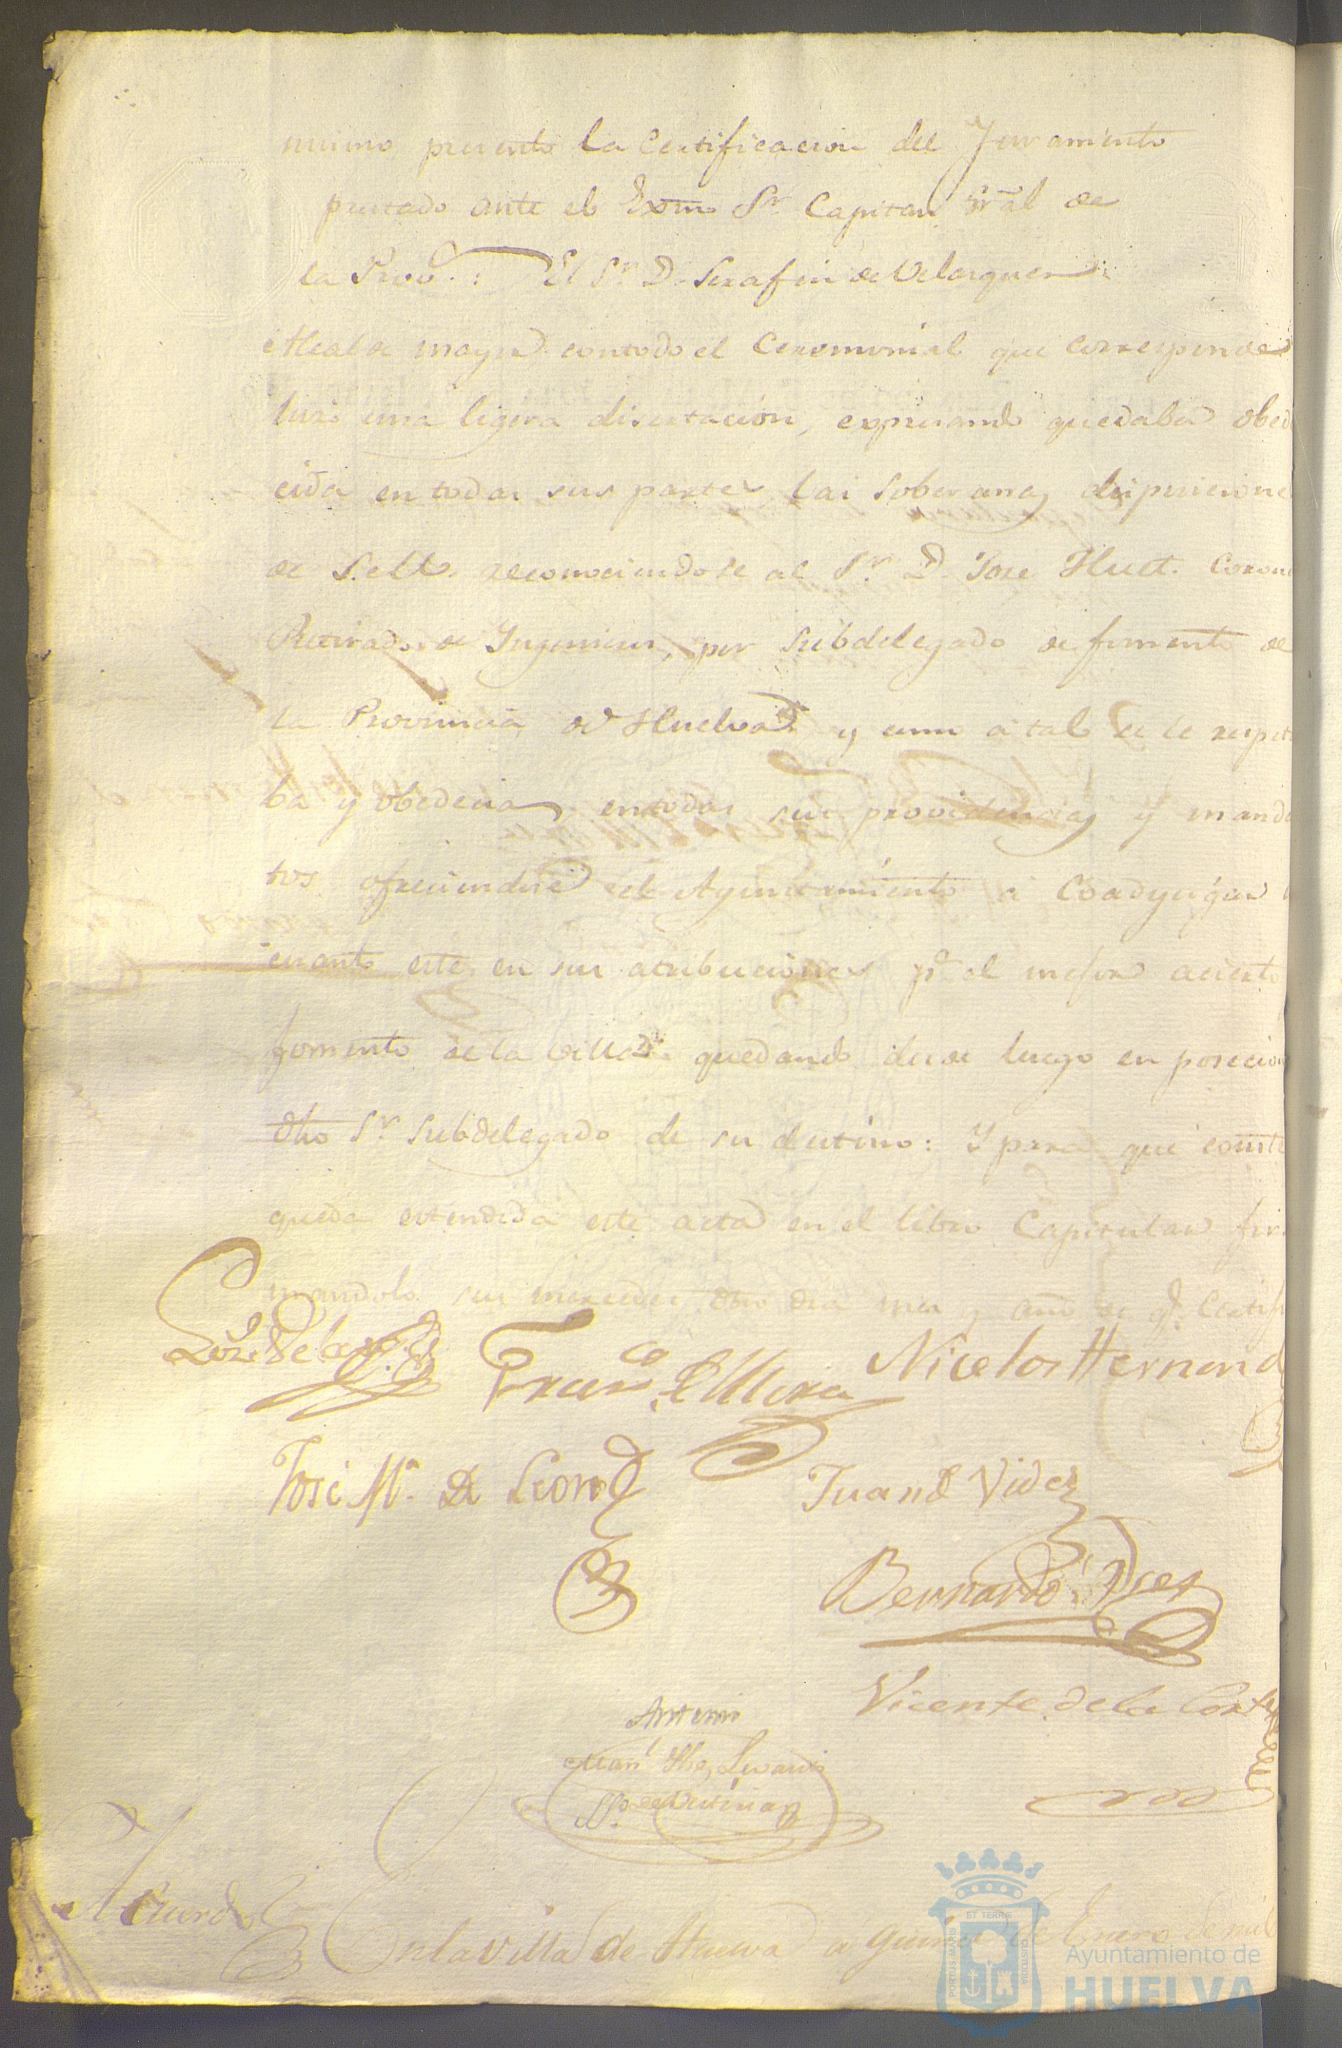 mismo presento la Certificacion del Juramento
prestado ante el Exmo Sr. Capitan Gral de
la Prov.: El Sr. D. Serafin de Velazquez
Alcalde mayor con todo el Ceremonial que corresponde
hizo una ligera disertacion, expresando quedaba obede
cida en todas sus partes las Soberanas disposicione
de S.M. reconociendose al Sr. D. Jose Huet. Corone
Retirado de Ingenieros, por Subdelegado de fomento de
la Provincia de Huelva y como a tal se le respeta
ba y obedecia en todas sus providencias y manda
tos ofreciendose el Ayuntamiento a Coadyugar
cuanto este en sus atribuciones pa. el mejor acierto
fomento de la Villa quedando desde luego en posecion
dho Sr. Subdelegado de su destino: Y para que conste
queda estendida este acta en el libro Capitular fir
mandolo sus mercedes dho dia mes y año de q. Certif
Franco. de Mora Nicolos Hernand
José Ma. de Leon Juan de Vides
Bernardo
Vicente de la Corte
Antemi
Acuerdo
En la villa de Huelva a quince de Enero de mil
PORTUS MARIS ET TERRE CUSTODIA
Ayuntamiento de
HUELVA